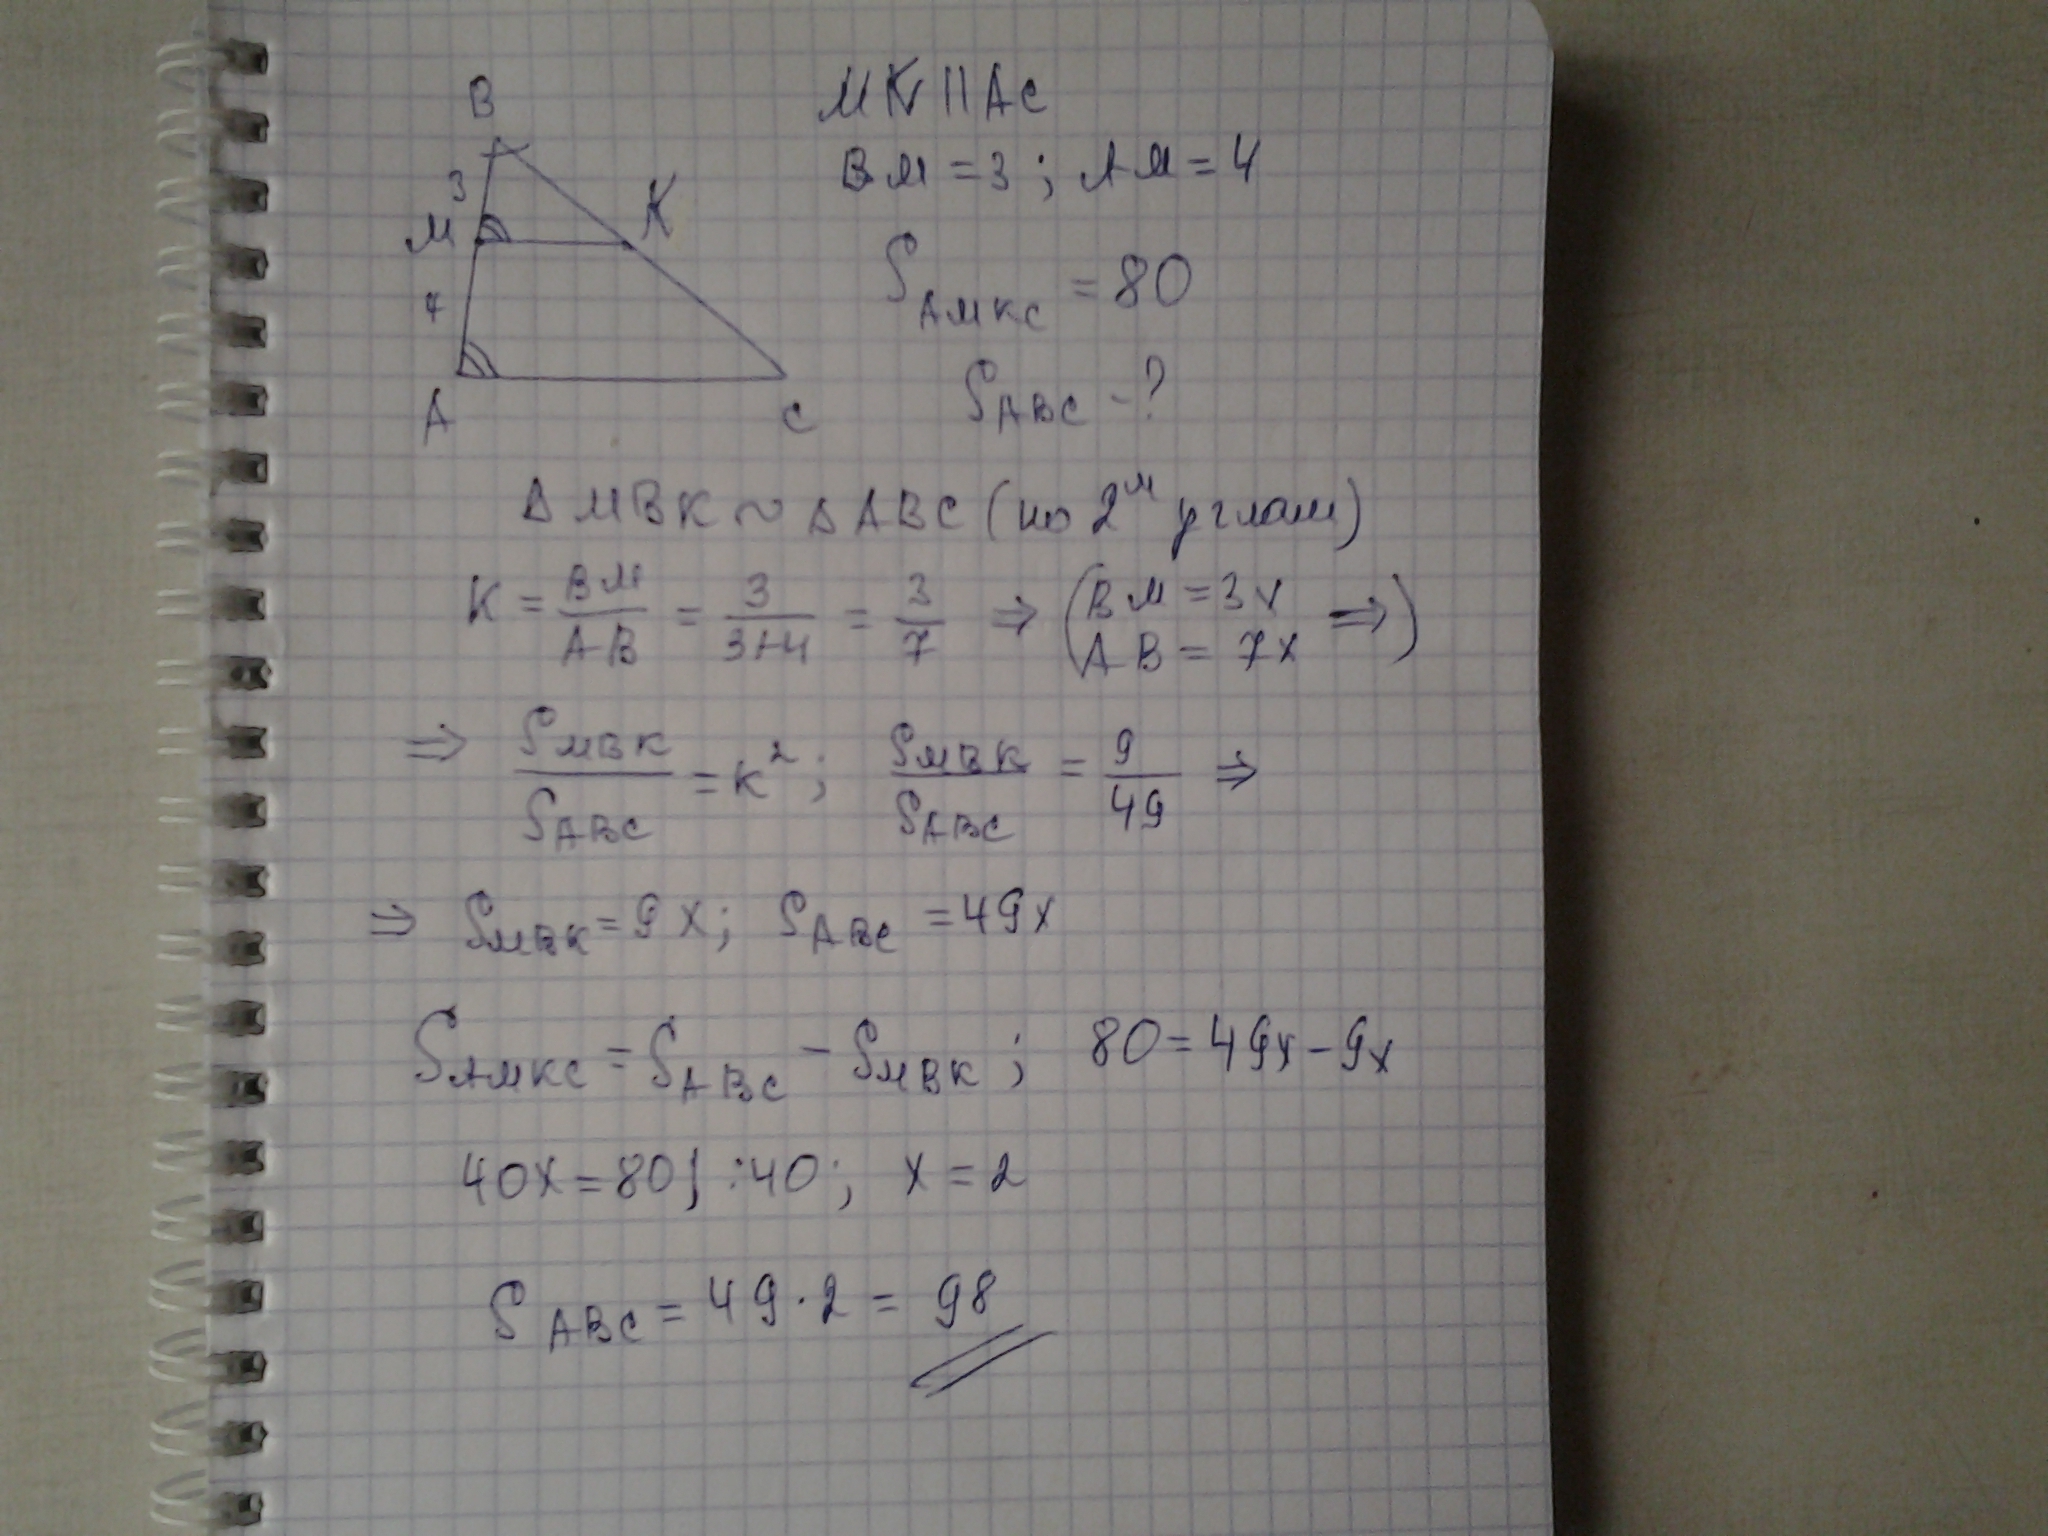 B
3
M
K
4
A
C
MK || AC
BM = 3 ; AM = 4
S AMKC = 80
S ABC - ?
Δ MBK ~ Δ ABC (по 2м углам)
K = BM/AB = 3/(3+4) = 3/7 ⇒ (BM = 3x AB = 7x ⇒)
⇒ S MBK / S ABC = K² ; S MBK / S ABC = 9/49 ⇒
⇒ S MBK = 9x ; S ABC = 49x
S AMKC = S ABC - S MBK ; 80 = 49x - 9x
40x = 80 | :40 ; x = 2
S ABC = 49 · 2 = 98